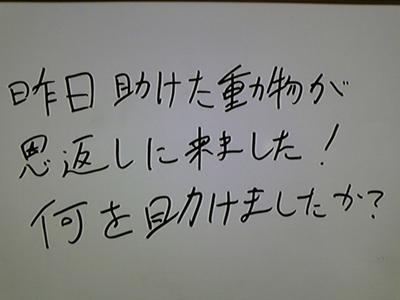 昨日助けた動物が
恩返しに来ました!
何を助けましたか?